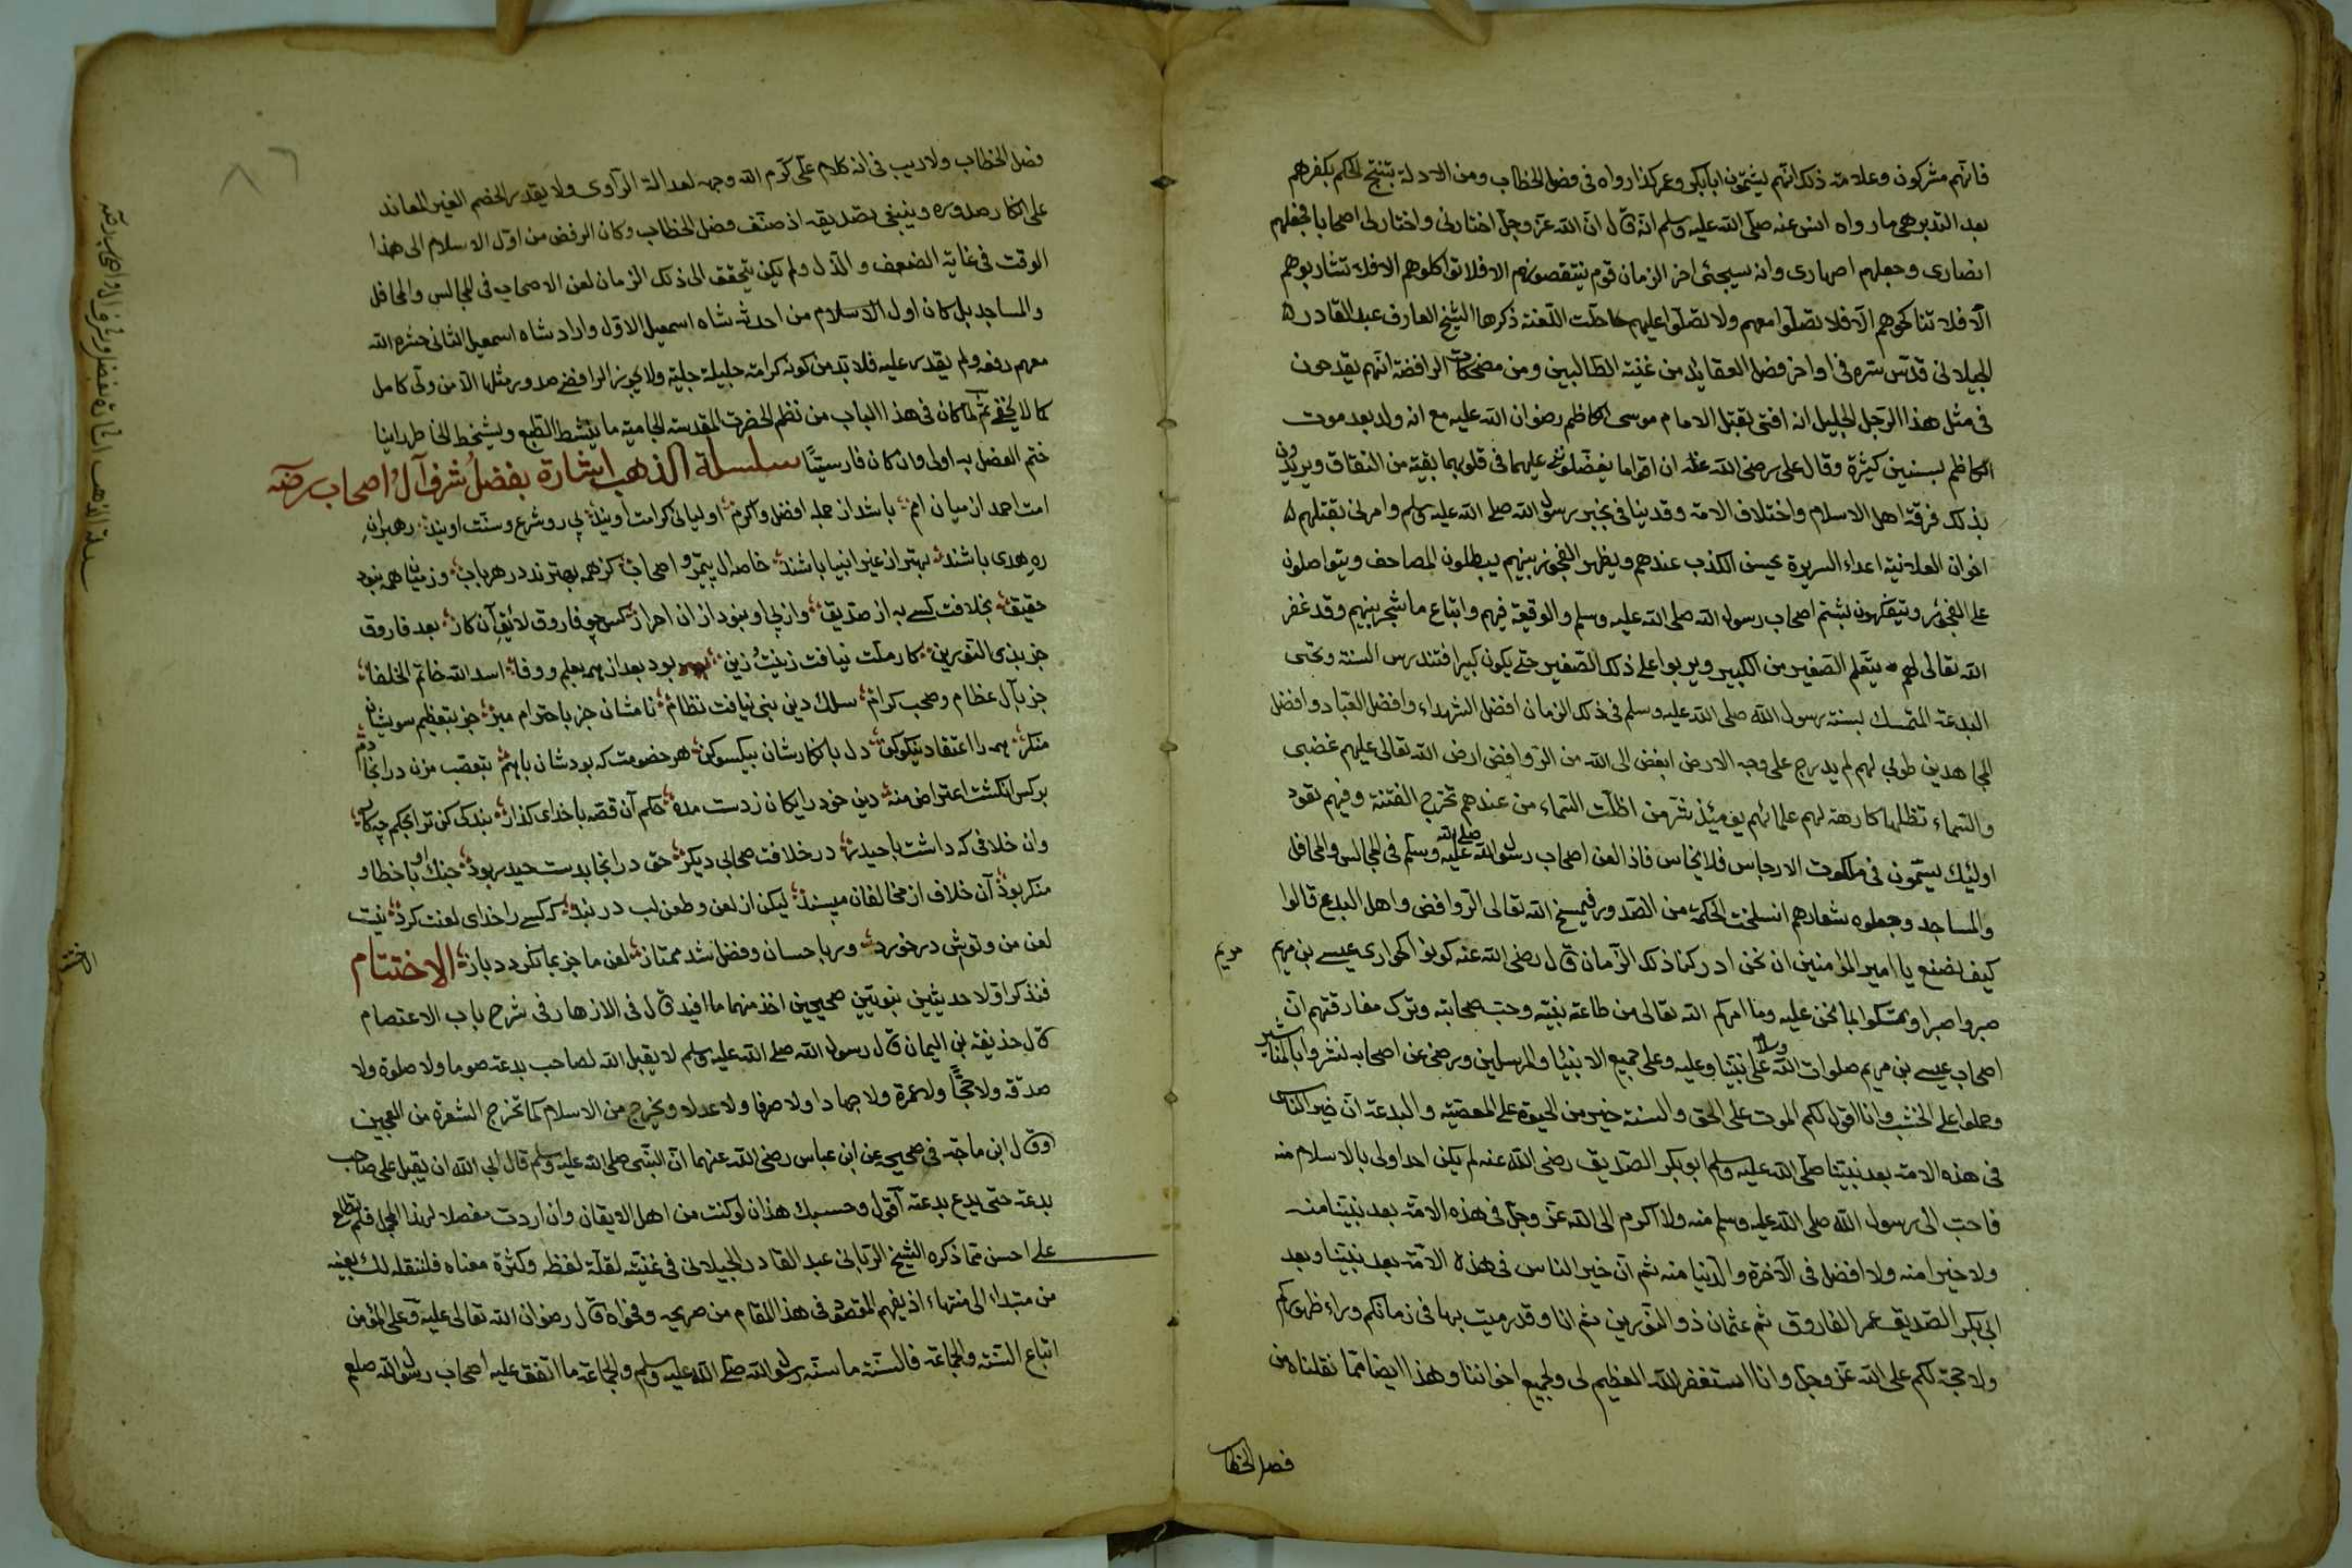 فانهم مشركون وعلامة ذلك انهم يشتمون ابابكر وعمر كذا رواه فى فصل الخطاب ومن الادلة ينتج الحكم بكفرهم
بعد التدبر هى ما رواه انس عنه صلى الله عليه وسلم انه قال ان الله عز وجل اختارنى واختار لى اصحابا فجعلهم
انصارى وجعلهم اصهارى وانه سيجئ اخر الزمان قوم ينتقصونهم الا فلا تواكلوهم الا فلا تشاربوهم
الا فلا تناكحوهم الا فلا تصلوا معهم ولا تصلوا عليهم حلت اللعنة ذكرها الشيخ العارف عبد القادر
الجيلانى قدس سره فى اواخر فصل العقايد من غنية الطالبين ومن مضحكات الرافضة انهم يقدحون
فى مثل هذا الرجل الجليل انه افتى بقتل الامام موسى الكاظم رضوان الله عليه مع انه ولد بعد موت
الكاظم بسنين كثيرة وقال على رضى الله عنه ان اقواما يفضلونى عليهما فى قلوبهما بقية من النفاق ويريدون
بذلك فرقة اهل الاسلام واختلاف الامة وقد نبأنى بخبر رسول الله صلى الله عليه وسلم وامرنى بقتلهم
اخوان العلانية اعداء السريرة يحسن الكذب عندهم ويظهر الفجور بينهم يبطلون المصاحف ويتواصلون
على الفجور ويتفكهون بشتم اصحاب رسول الله صلى الله عليه وسلم والوقيعة فيهم واتباع ما شجر بينهم وقد غفر
الله تعالى لهم يتعلم الصغير من الكبير ويربوا على ذلك الصغير حتى يكون كبيرا فتندرس السنة وتحيى
البدعة المتمسك بسنة رسول الله صلى الله عليه وسلم فى ذلك الزمان افضل الشهداء وافضل العباد وافضل
المجاهدين طوبى لهم لم يدرج على وجه الارض ابغض الى الله من الروافض ارض الله تعالى عليهم غضبى
والسماء تظلها كارهة لهم علمائهم يومئذ شر من اظلت السماء من عندهم تخرج الفتنة وفيهم تعود
اولئك يسمون فى ملكوت الارجاس فلانجاس فاذا لعن اصحاب رسول الله صلى الله عليه وسلم فى المجالس والمحافل
والمساجد وجعلوه شعارهم انسلخت الحكمة من الصدور فيمسخ الله تعالى الروافض واهل البدع قالوا
كيف نصنع يا امير المؤمنين ان نحن ادركنا ذلك الزمان قال رضى الله عنه كونوا كحوارى عيسى بن مريم
مريم
صبروا صبرا وتمسكوا بما نحن عليه وما امركم الله تعالى من طاعة نبيه وحب صحابته وترك مفارقتهم ان
اصحاب عيسى بن مريم صلوات الله وسلامه على نبينا وعليه وعلى جميع الانبياء والمرسلين ورضى عن اصحابه نشروا بالمناشير
وصلبوا على الخشب وانا اقول لكم الموت على الحق والسنة خير من الحيوة على المعصية والبدعة ان خير الناس
فى هذه الامة بعد نبينا صلى الله عليه وسلم ابو بكر الصديق رضى الله عنه لم يكن احد اولى بالاسلام منه
فاحب الى رسول الله صلى الله عليه وسلم منه ولا اكرم الى الله عز وجل فى هذه الامة بعد نبينا منه
ولا خيرا منه ولا افضل فى الآخرة والدنيا منه ثم ان خير الناس فى هذه الامة بعد نبينا وبعد
ابى بكر الصديق عمر الفاروق ثم عثمان ذو النورين ثم انا وقد رميت بها فى زمانكم وراء ظهوركم
ولا حجة لكم على الله عز وجل وانا استغفر الله العظيم لى ولجميع اخواننا وهذا ايضا مما نقلناه من
فصل الخطاب
٨٦
فصل الخطاب ولا ريب فى انه كلام على كرم الله وجهه لعدالة الراوى ولا يقدر الخصم الغير المعاند
على انكار صدوره وينبغى تصديقه اذ صنف فصل الخطاب وكان الرفض من اول الاسلام الى هذا
الوقت فى غاية الضعف والذل ولم يكن يتحقق الى ذلك الزمان لعن الاصحاب فى المجالس والمحافل
والمساجد بل كان اول الاسلام من احدثه شاه اسمعيل الاول واراد شاه اسمعيل الثانى حشره الله
معهم رفعه ولم يقدر عليه فلا بد من كونه كرامة جليلة جلية ولا يجوز الرافضى صدور مثلها الا من ولى كامل
كما لا يخفى ثم لما كان فى هذا الباب من نظم الحضرت المقدسة الجامية ما ينشط الطبع ويشحط الخاطر راينا
ختم الفصل به اولى وان كان فارسيتا سلسلة الذهب اشارة بفضل وشرف آل واصحاب رضه
امت احمد از ميان امم باشد از جمله افضل واكرم اوليائى كرامت اويند پى رو شرع وسنت اويند رهبران
ره هدى باشند بهتر از غير انبيا باشند خاصه آل پيمبر و اصحاب كز همه بهترند در هر باب وز ميان همه نبود
حقيق بخلافت كسى به از صديق وز پى او نبود از ان احرار كس چو فاروق لايق آن كار بعد فاروق
جز بذى النورين كار ملت نيافت زينت وزين بود بعد از همه بعلم ووفا اسد الله خاتم الخلفا
جز بآل عظام وصحب كرام سلك دين نبى نيافت نظام نامشان جز باحترام مبر جز بتعظيم سويشان
منكر همه را اعتقاد نيكو كن دل بانكارشان بيكسو كن هر خصومت كه بودشان با هم بتعصب مزن در انجا دم
بر كس انگشت اعتراض منه دين خود رايگان ز دست مده حكم آن قصه با خداى گذار بندگى كن ترا بحكم چه كار
وان خلافى كه داشت با حيدر در خلافت صحابى ديگر حق در انجا بدست حيدر بود جنگ او با خطا و
منكر بود آن خلاف از مخالفان مپسند ليكن از لعن وطعن لب در بند گر كسى را خداى لعنت كرد نيست
لعن من وتوئى در خورد ور باحسان وفضل شد ممتاز لعن ما جز بما نگردد باز الاختتام
فنذكر اولا حديثين نبويين صحيحين اخذ منهما ما افيد قال فى الازهار فى شرح باب الاعتصام
قال حذيفة بن اليمان قال رسول الله صلى الله عليه وسلم لا يقبل الله لصاحب بدعة صوما ولا صلوة ولا
صدقة ولا حجا ولا عمرة ولا جهادا ولا صرفا ولا عدلا ويخرج من الاسلام كما تخرج الشعرة من العجين
وقال ابن ماجة فى صحيحه عن ابن عباس رضى الله عنهما ان النبى صلى الله عليه وسلم قال ابى الله ان يقبل على صاحب
بدعة حتى يدع بدعته اقول وحسبك هذان لو كنت من اهل الايقان وان اردت مفصلا لهذا المجمل فلم تطلع
على احسن مما ذكره الشيخ الربانى عبد القادر الجيلانى فى غنيته لقلة لفظه وكثرة معناه فلننقله لك بعينه
من مبتداه الى منتهاه اذ يفهم المقصود فى هذا المقام من صريحه وفحواه قال رضوان الله تعالى عليه وعلى المؤمن
اتباع السنة والجماعة فالسنة ما سنه رسول الله صلى الله عليه وسلم والجماعة ما اتفق عليه اصحاب رسول الله صلعم
سلسلة الذهب اشارة بفضل وشرف آل واصحاب رضه